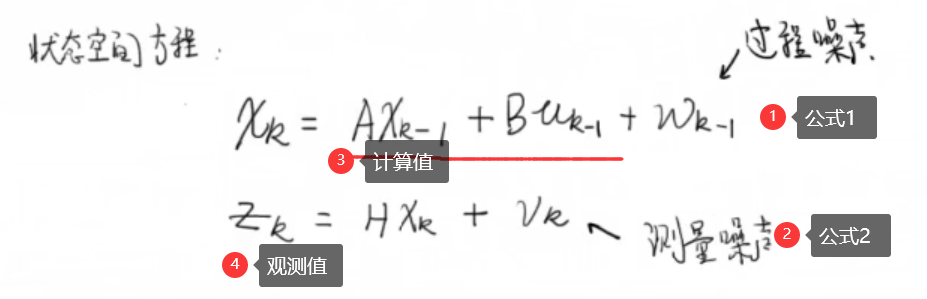 状态空间方程：
过程噪声
X_k = AX_{k-1} + Bu_{k-1} + w_{k-1}
1 公式1
3 计算值
Z_k = HX_k + v_k
测量噪声
2 公式2
4 观测值